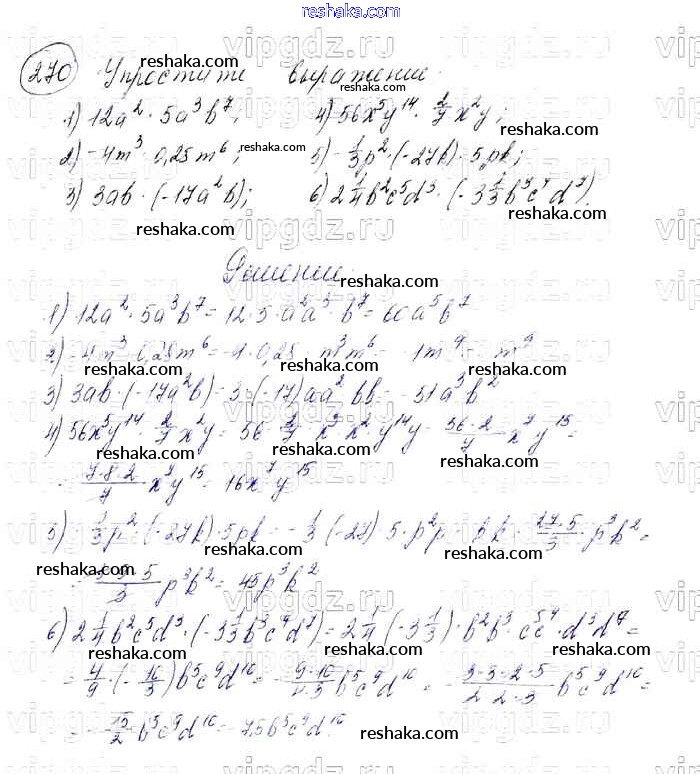 reshaka.com
270 Упростите выражение.
1) 12a² · 5a³b⁷; 4) 56x⁵y¹⁴ · 2/7 x²y;
2) -4m³ · 0,25m⁶; 5) -1/3p² · (-27k) · 5pk;
3) 3ab · (-17a²b); 6) 2 1/4 b²c⁵d³ · (-3 1/3 b³c⁴d⁷).
Решение.
1) 12a² · 5a³b⁷ = 12 · 5 · a²a³ · b⁷ = 60a⁵b⁷
2) -4m³ · 0,25m⁶ = -4 · 0,25 m³m⁶ = -1m⁹ = -m⁹
3) 3ab · (-17a²b) = 3 · (-17)aa² bb = -51a³b²
4) 56x⁵y¹⁴ · 2/7 x²y = 56 · 2/7 x⁵x² y¹⁴y = 56·2/7 x⁷y¹⁵ =
= 7·8·2/7 x⁷y¹⁵ = 16x⁷y¹⁵
5) -1/3p² · (-27k) · 5pk = -1/3 (-27) · 5 · p²p · kk = 27·5/3 · p³k² =
p³k² = 45p³k²
6) 2 1/4 b²c⁵d³ · (-3 1/3 b³c⁴d⁷) = 2 1/4 · (-3 1/3) · b²b³ · c⁵c⁴ · d³d⁷ =
= 4/9 · (-10/3) b⁵c⁹d¹⁰ = -9·10/4·3 b⁵c⁹d¹⁰ = -3·3·2·5/2·2·3 b⁵c⁹d¹⁰ =
= -15/2 b⁵c⁹d¹⁰ = -7,5b⁵c⁹d¹⁰.